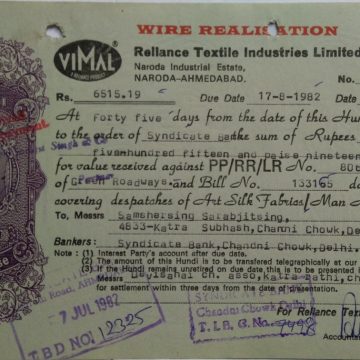 WIRE REALISATION
VIMAL
A RELIANCE PRODUCT
Reliance Textile Industries Limited
Naroda Industrial Estate,
NARODA-AHMEDABAD.
No.
Rs. 6515.19 Due Date 17-8-1982
At Forty five days from the date of this Hun
to the order of Syndicate Bank the sum of Rupees
five hundred fifteen and paise nineteen
for value received against PP/RR/LR No. 806
of Roadways and Bill No. 133165 da
covering despatches of Art Silk Fabrics/Man
To, Messrs Samshersing Sarabjitsing,
4833-Katra Subhash, Chandni Chowk, Del
Bankers: Syndicate Bank, Chandni Chowk, Delhi.
Note : (1) Interest Party's account after due date.
(2) The amount of this Hundi to be transfered telegraphically at our
(3) If the Hundi remains unretired on due date, this is to be presented
Messrs
for settlement within three days from the date of presentation.
For Reliance Text
Accountant
AHMED
7 JUL 1982
T.B.D NO. 12325
SYNDICATE
Chandni Chowk Delhi
T.I.B.G. No. 9498